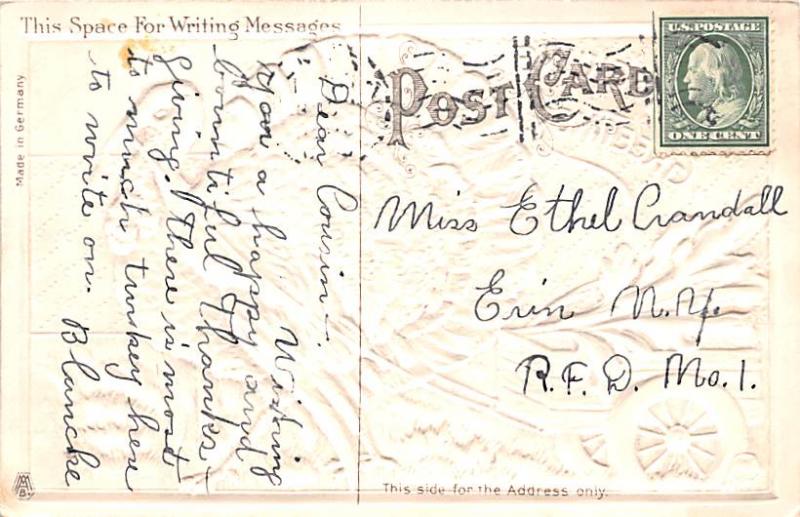 This Space For Writing Messages
Made in Germany
Dear Cousin:-
Wishing
you a happy and
bountiful Thanks-
giving. There is most
to much turkey here
to write on. Blanche
POST CARD
U.S. POSTAGE
ONE CENT
Miss Ethel Crandall
Erin N.Y.
R.F.D. No. 1.
This side for the Address only.